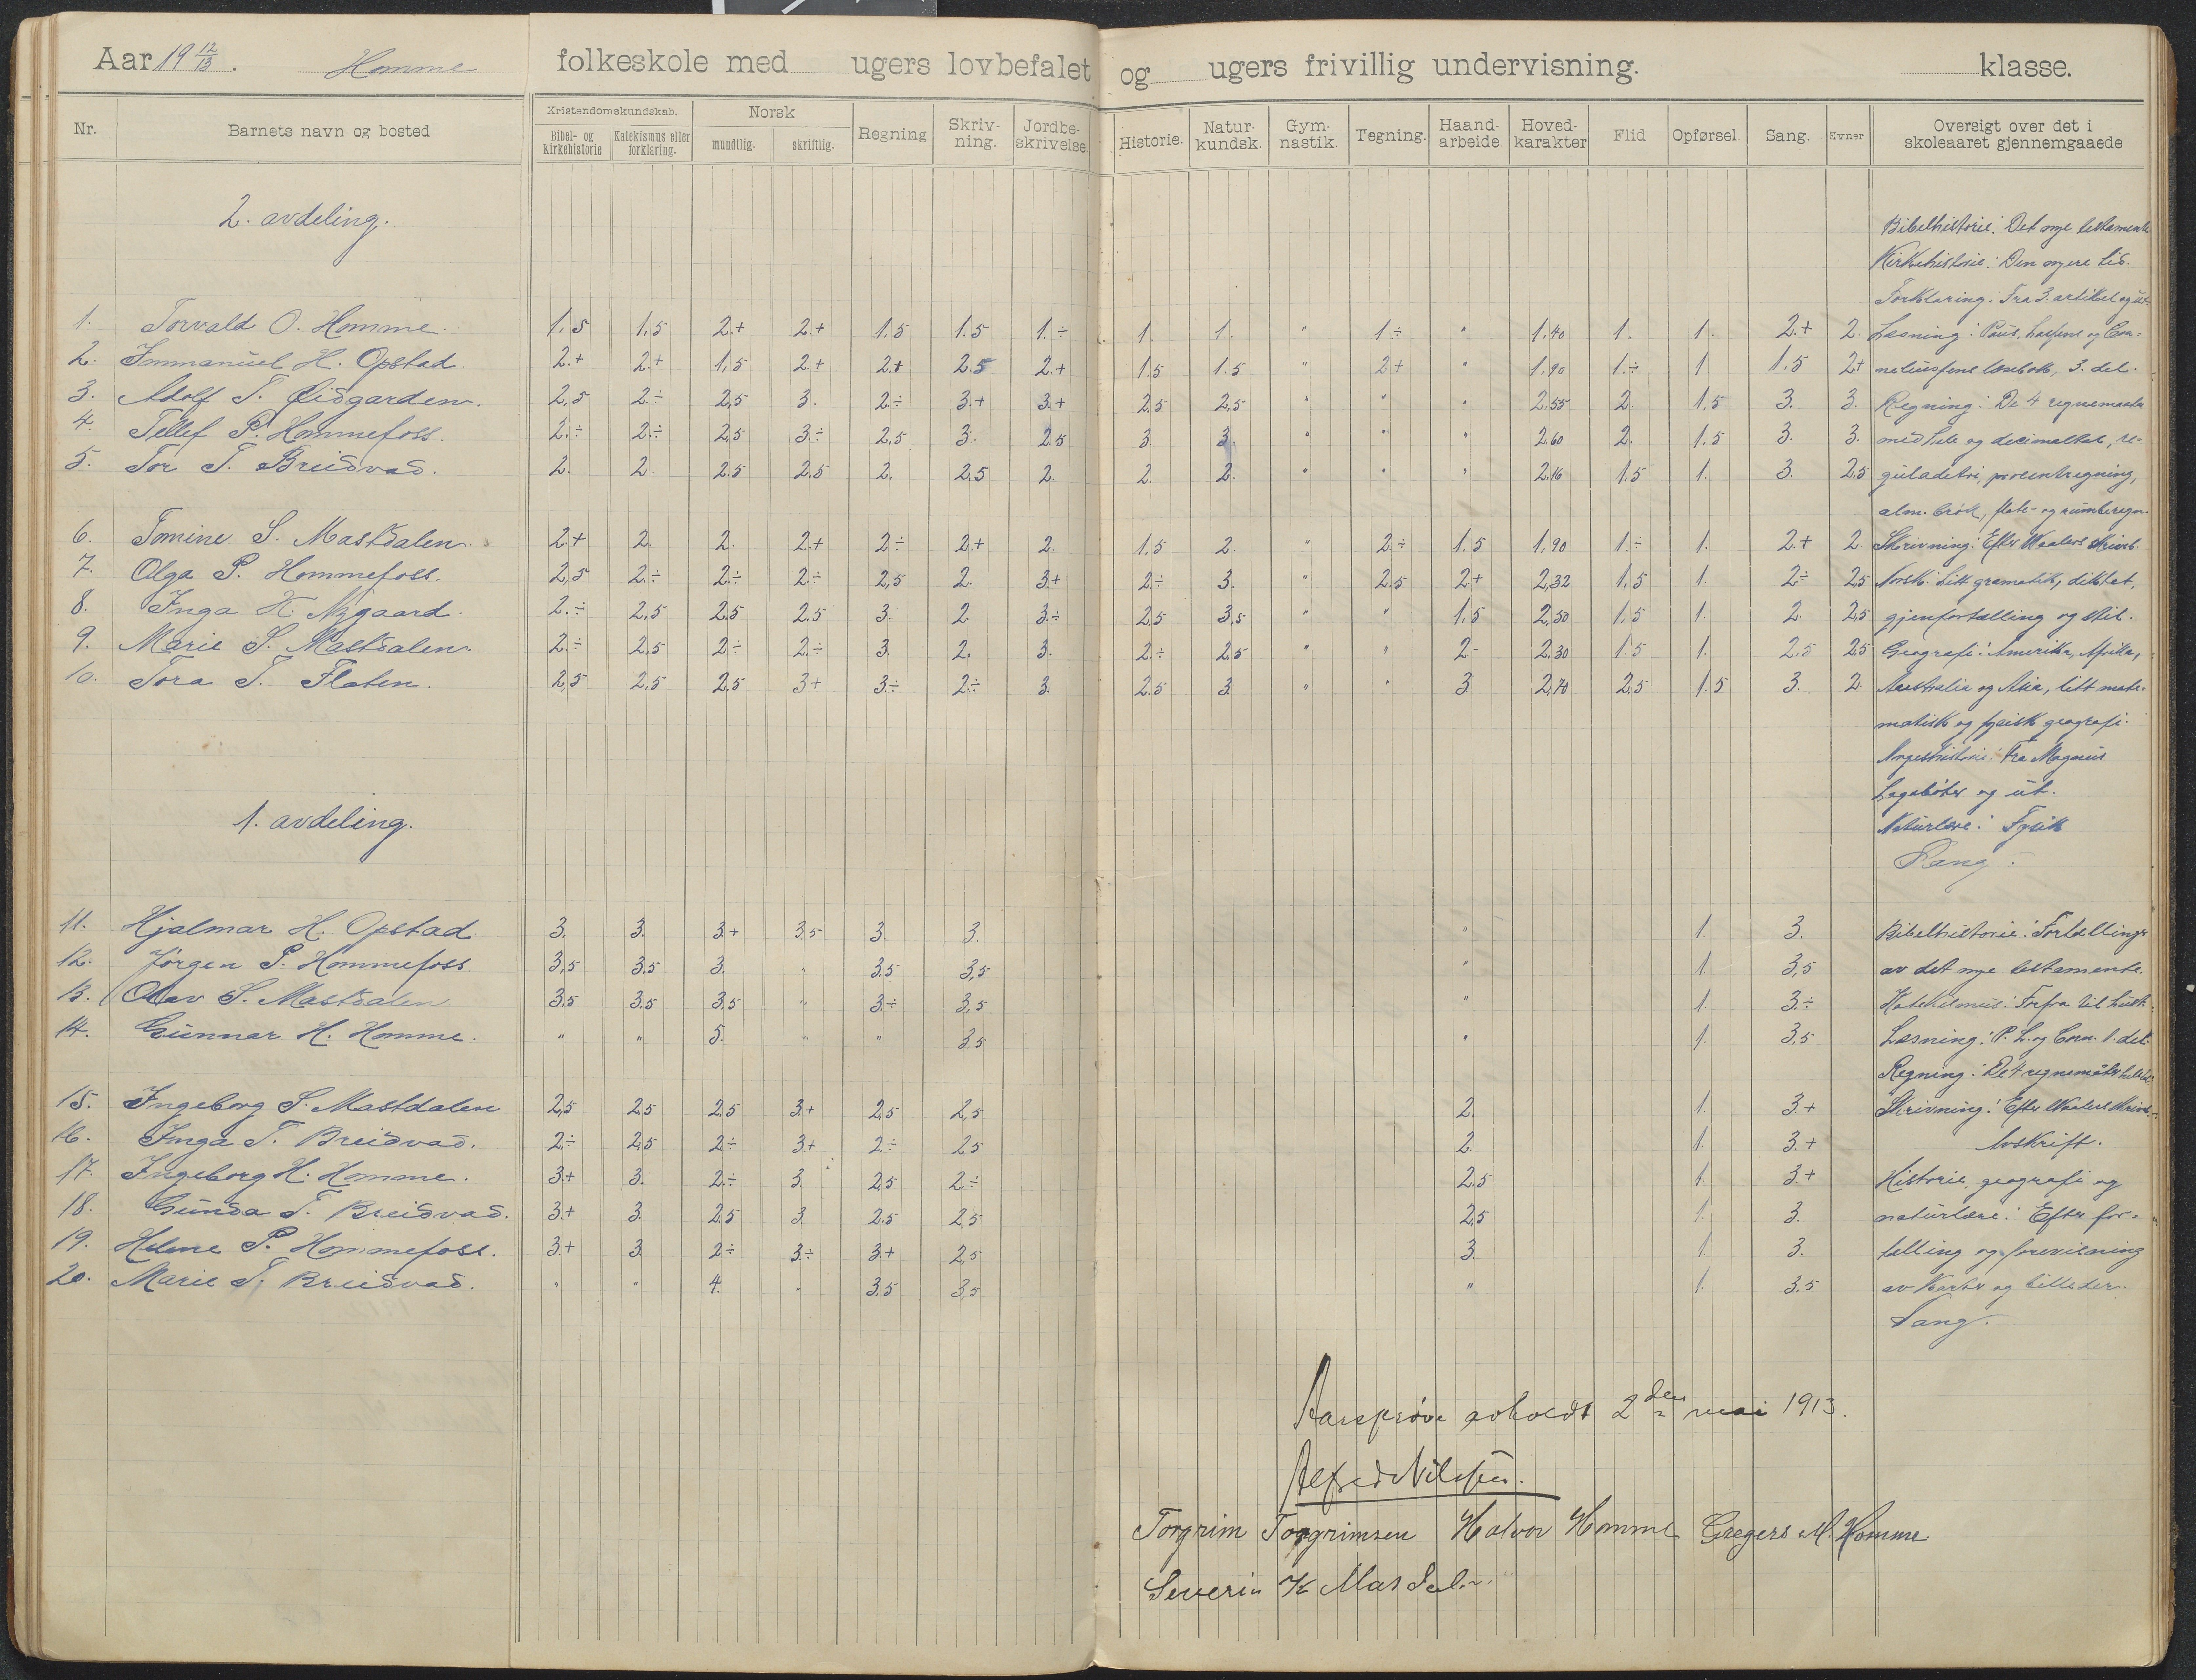 Aar 19 12/13. Homme folkeskole med ugers lovbefalet og ugers frivillig undervisning. klasse.
Nr. Barnets navn og bosted Kristendomskundskab. Bibel- og kirkehistorie Katekismus eller forklaring. Norsk mundtlig. skriftlig. Regning Skriv-ning. Jordbe-skrivelse. Historie. Natur-kundsk. Gym-nastik. Tegning. Haand-arbeide. Hoved-karakter Flid Opførsel. Sang. Evner Oversigt over det i skoleaaret gjennemgaaede
2. avdeling.
Bibelhistorie: Det nye testamente
Kirkehistorie: Den nyere tid.
Forklaring: Fra 3. artikel og ut.
1. Torvald O. Homme. 1,5 1,5 2.+ 2.+ 1,5 1.5 1.÷ 1. 1. " 1÷ " 1,40 1. 1. 2.+ 2. Læsning: Paus, Lassens og Cor-
2. Immanuel H. Opstad. 2.+ 2.+ 1,5 2.+ 2.+ 2.5 2.+ 1.5 1.5 " 2+ " 1,90 1.÷ 1. 1.5 2+ neliussens læsebok, 3. del.
3. Adolf T. Øidgarden. 2,5 2.÷ 2,5 3. 2.÷ 3.+ 3.+ 2,5 2,5 " " " 2,55 2. 1,5 3. 3. Regning: De 4 regnemaater
4. Tellef P. Hommefoss. 2.÷ 2.÷ 2,5 3.÷ 2,5 3. 2.5 3. 3. " " " 2,60 2. 1.5 3. 3. med hele og decimaltal, re-
5. Tor T. Breidvad. 2. 2. 2.5 2.5 2. 2,5 2. 2. 2. " " " 2.16 1.5 1. 3. 2,5 guladetri, procentregning,
alm. brøk, flate- og rumberegn.
6. Tomine S. Mastdalen. 2.+ 2. 2. 2.+ 2.÷ 2.+ 2. 1,5 2. " 2.÷ 1.5 1,90 1.÷ 1. 2.+ 2. Skrivning: Efter Waalers skriveb.
7. Olga P. Hommefoss. 2,5 2.÷ 2.÷ 2.÷ 2,5 2. 3+ 2.÷ 3. " 2.5 2.+ 2,32 1,5 1. 2.÷ 2,5 Norsk: Litt gramatik, diktat,
8. Inga H. Nygaard. 2.÷ 2,5 2.5 2.5 3. 2. 3.÷ 2.5 3,5 " " 1.5 2,50 1,5 1. 2. 2,5 gjenfortælling og stil.
9. Marie S. Mastdalen. 2.÷ 2,5 2.÷ 2.÷ 3. 2. 3. 2.÷ 2,5 " " 2- 2.30 1.5 1. 2.5 2.5 Geografi: Amerika, Afrika,
10. Tora T. Flaten. 2,5 2,5 2.5 3+ 3.÷ 2.÷ 3. 2.5 3. " " 3 2,70 2,5 1.5 3. 2. Australia og Asia, litt mate-
matisk og fysisk geografi.
Norgeshistorie: Fra Magnus
Lagabøter og ut.
Naturlære: Fysik
Sang.
1. avdeling.
11. Hjalmar H. Opstad. 3. 3. 3+ 3.5 3. 3. " 1. 3. Bibelhistorie: Fortællinger
12. Jørgen P. Hommefoss. 3,5 3.5 3. " 3.5 3,5 " 1. 3,5 av det nye testamente.
13. Olav S. Mastdalen 3.5 3.5 3,5 " 3.÷ 3,5 " 1. 3.÷ Katekismus: Forfra til
14. Gunnar H. Homme. " " 5. " " 3.5 " 1. 3,5 Læsning: P. L. og Corn. 1. del.
Regning: De 4 regnemåter
15. Ingeborg S. Mastdalen 2,5 2.5 2.5 3.+ 2,5 2,5 2. 1. 3.+ Skrivning: Efter Waalers skriveb.
16. Inga T. Breidvad. 2.÷ 2,5 2.÷ 3.+ 2.÷ 2.5 2. 1. 3.+ Avskrift.
17. Ingeborg H. Homme. 3.+ 3. 2.÷ 3. 2,5 2.÷ 2.5 1. 3.+ Historie, geografi og
18. Gunda T. Breidvad. 3.+ 3. 2.5 3. 2.5 2,5 2,5 1. 3. naturlære: Efter for-
19. Helene P. Hommefoss. 3.+ 3. 2.÷ 3.÷ 3.+ 2,5 3. 1. 3. tælling og forevisning
20. Marie T. Breidvad. " " 4. " 3.5 3.5 " 1. 3.5 av karter og billeder.
Sang.
Aarsprøve avholdt 2den mai 1913.
Alfred Nilssen.
Torgrim Torgrimsen Halvor Homme Gregers M. Homme
Severin K Masdalen